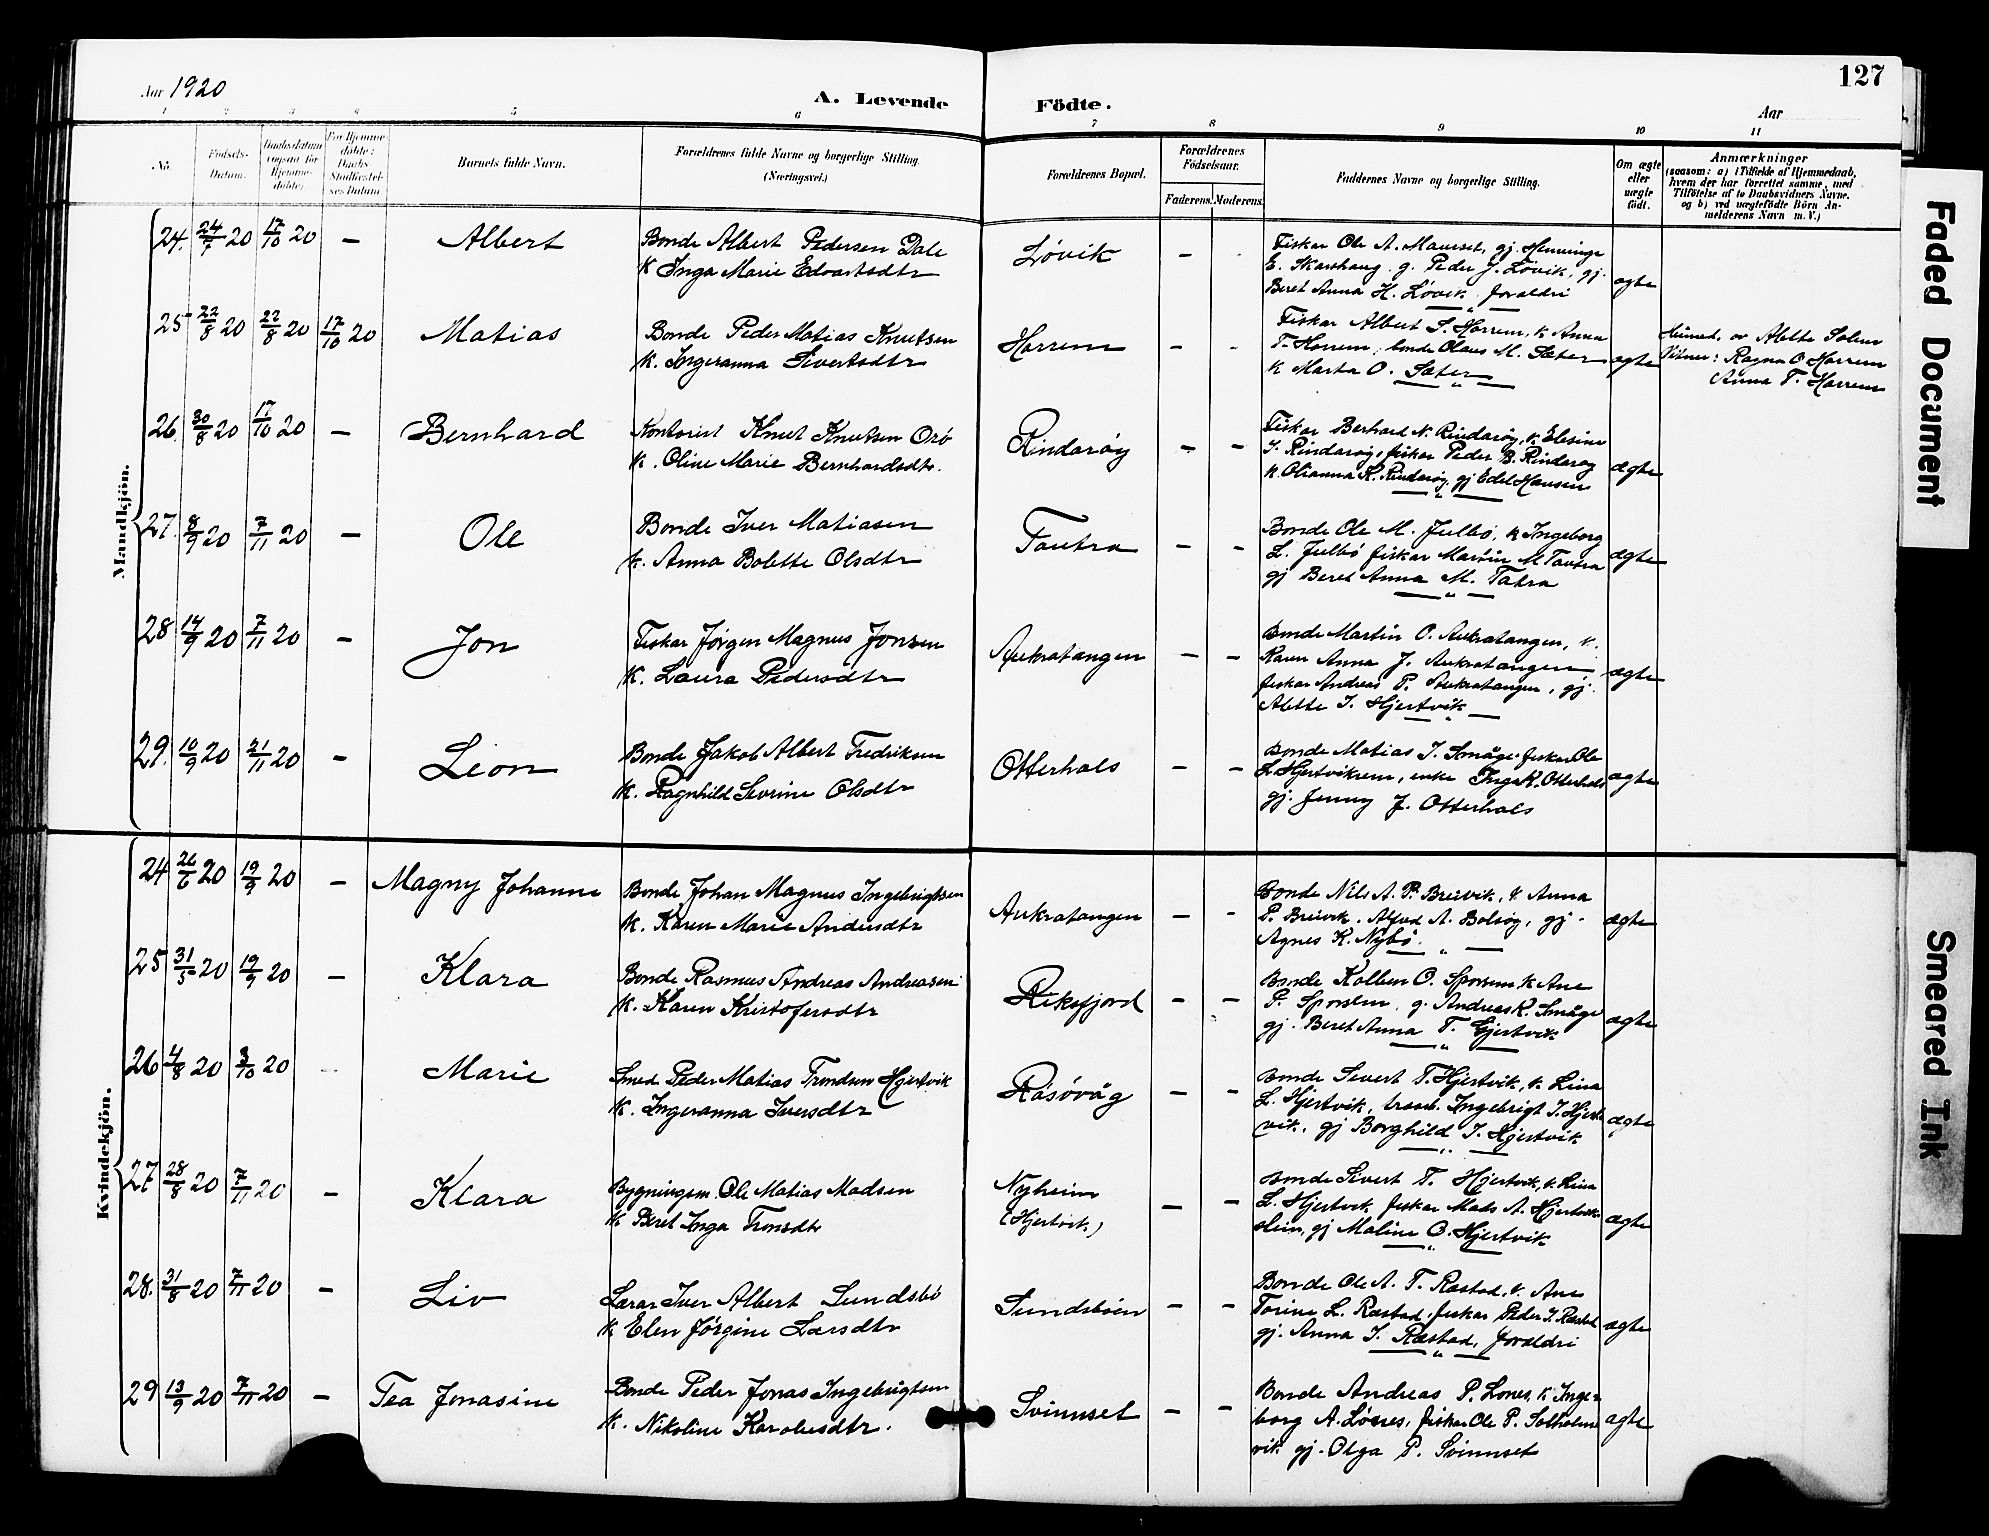 Aar 1920
A. Levende Födte.
127
Aar
1 2 3 4 5 6 7 8 9 10 11
No.
Födsels-
Datum.
Daabsdatum
(ogsaa for
Hjemme-
døbte).
Fra Hjemme-
døbte:
Daabs-
Stadfæstel-
ses Datum
Barnets fulde Navn.
Forældrenes fulde Navne og borgerlige Stilling.
(Næringsvei.)
Forældrenes Bopæl.
Forældrenes
Födselsaar.
Faderens. Moderens.
Faddernes Navne og borgerlige Stilling.
Om ægte
eller
uægte
födt.
Anmærkninger
(saasom: a) i Tilfælde af Hjemmedaab,
hvem der har forrettet samme, med
Tilföielse af to Daabsvidners Navne.
og b) ved uægtefödte Börn An-
melderens Navn m. V.)
Mandkjön.
24. 24/7 20 17/10 20 — Albert
Bonde Albert Pedersen Dale
K Inga Marie Edvartsdtr
Løvik - -
Fiskar Ole A. Maurset, gj Henninge
E. Skarshaug. g. Peder J. Løvik, gj.
Beret Anna H. Løvik. foraldri
ægte
25 22/8 20 22/8 20 17/10 20 Matias
Bonde Peder Matias Knutsen
K. Ingeranna Sivertsdtr
Harrem - -
Fiskar Albert S. Harrem, k Anna
T. Harrem, bonde Olaus M. Sæter
k Marta O. Sæter
ægte
Heimed. av Alette Solem
Vitner: Ragna O Harrem
Anna T. Harrem
26. 30/8 20 17/10 20 — Bernhard
Kontorist Knut Knutsen Orö
K. Oline Marie Bernhardsdtr.
Rindarøy - -
Fiskar Berhard N. Rindarøy, k Elesine
J. Rindarøy, fiskar Peder B. Rindarøy
k. Olianna K. Rindarøy, gj Edel Hansen
ægte
27. 8/9 20 7/11 20 — Ole
Bonde Iver Matiasen
K. Anna Bolette Olsdtr
Tautra - -
Bonde Ole M. Julbö, k Ingeborg
L. Julbö fiskar Martin M Tautra
gj Beret Anna M. Tatra
ægte
28 14/9 20 7/11 20 — Jon
Fiskar Jørgen Magnus Jonsen
K. Laura Pedersdtr
Aukratangen - -
Bonde Martin O. Aukratangen, k.
Karen Anna J. Aukratangen,
fiskar Andreas P. Aukratangen, gj.
Alette I. Hjertvik
ægte
29. 10/9 20 21/11 20 — Leon
Bonde Jakob Albert Fredriksen
K. Ragnhild Severine Olsdtr
Otterhals - -
Bonde Matias I. Småge fiskar Ole
L. Hjertviksem, enke Inga K. Otterhals
gj. Jenny J. Otterhals
ægte
Kvindekjön.
24 26/6 20 19/9 20 — Magny Johanne
Bonde Johan Magnus Ingebrigtsen
K. Karen Marie Andersdtr
Aukratangen - -
Bonde Nils A. P. Breivik, k. Anna
P. Breivik. Alfred A. Bolsøy, gj.
Agnes K. Nybø.
ægte
25 31/5 20 19/9 20 — Klara
Bonde Rasmus Andreas Andreasen
K. Karen Kristofersdtr
Riksfjord - -
Bonde Kolben O. Sporsem k Ane
P. Sporsem, g. Andreas R. Småge
gj. Beret Anna T. Gjertvik
ægte
26 4/8 20 3/10 20 Marie
Smed Peder Matias Trondsen Hjertvik
K. Ingeranna Iversdtr
Råsövåg - -
Bonde Sivert T. Hjertvik, k. Lina
L. Hjertvik, Ingebrigt I. Hjert-
vik, gj Borghild I. Hjertvik
ægte
27 28/8 20 7/11 20 — Klara
Bygningsm. Ole Matias Madsen
K Beret Inga Tronsdtr
Nyheim
(Hjertvik) - -
Bonde Sivert T. Hjertvik, k. Lina
L. Hjertvik fiskar Mats A. Hjertvik-
slein, gj Maline O. Hjertvik
ægte
28. 31/8 20 7/11 20 — Liv
Lærar Iver Albert Sundsbö
K Elen Jörgine Larsdtr
Sundsböen - -
Bonde Ole A. T. Rastad, k. Ane
Torine L. Rastad, fiskar Peder I. Rastad
gj. Anna I. Rastad, foraldri
ægte
29 13/9 20 7/11 20 — Tea Jonasine
Bonde Peder Jonas Ingebrigtsen
K. Nikoline Karolusdtr.
Svinnset - -
Bonde Andreas P. Lønes, k Inge-
borg A. Lönes, fiskar Ole P. Solholm
vik gj. Olga P. Svinnset
ægte
Faded Document
Smeared Ink